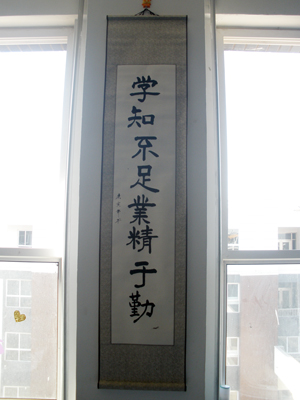 学知不足業精于勤